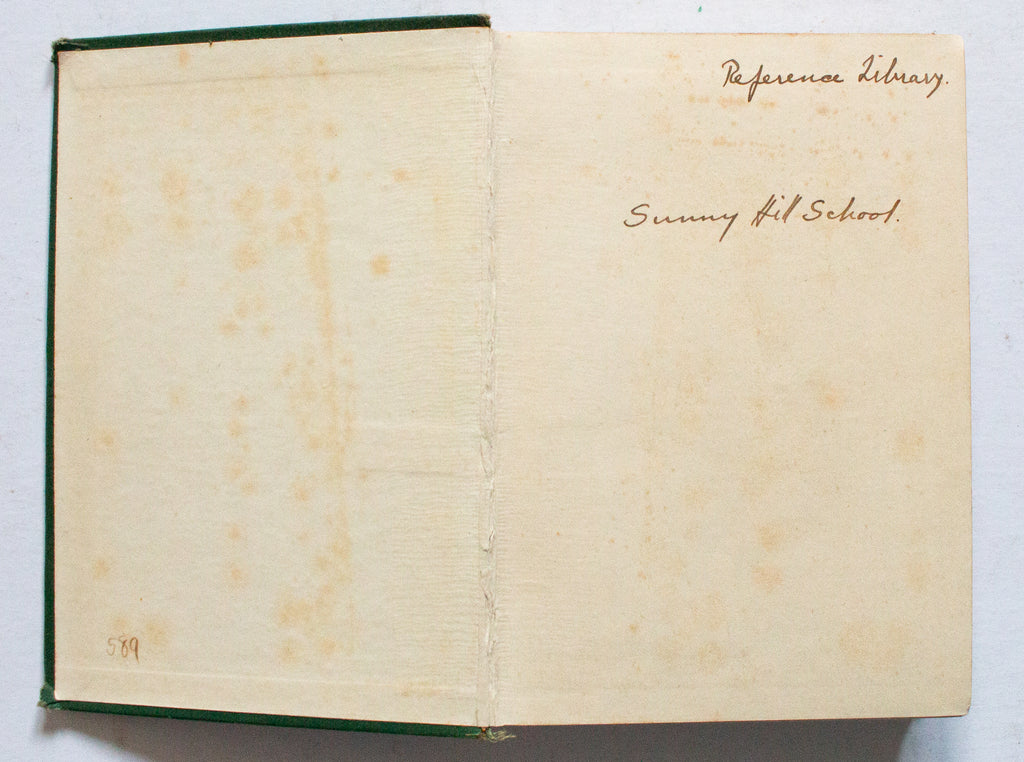 Reference Library.
Sunny Hill School.
589